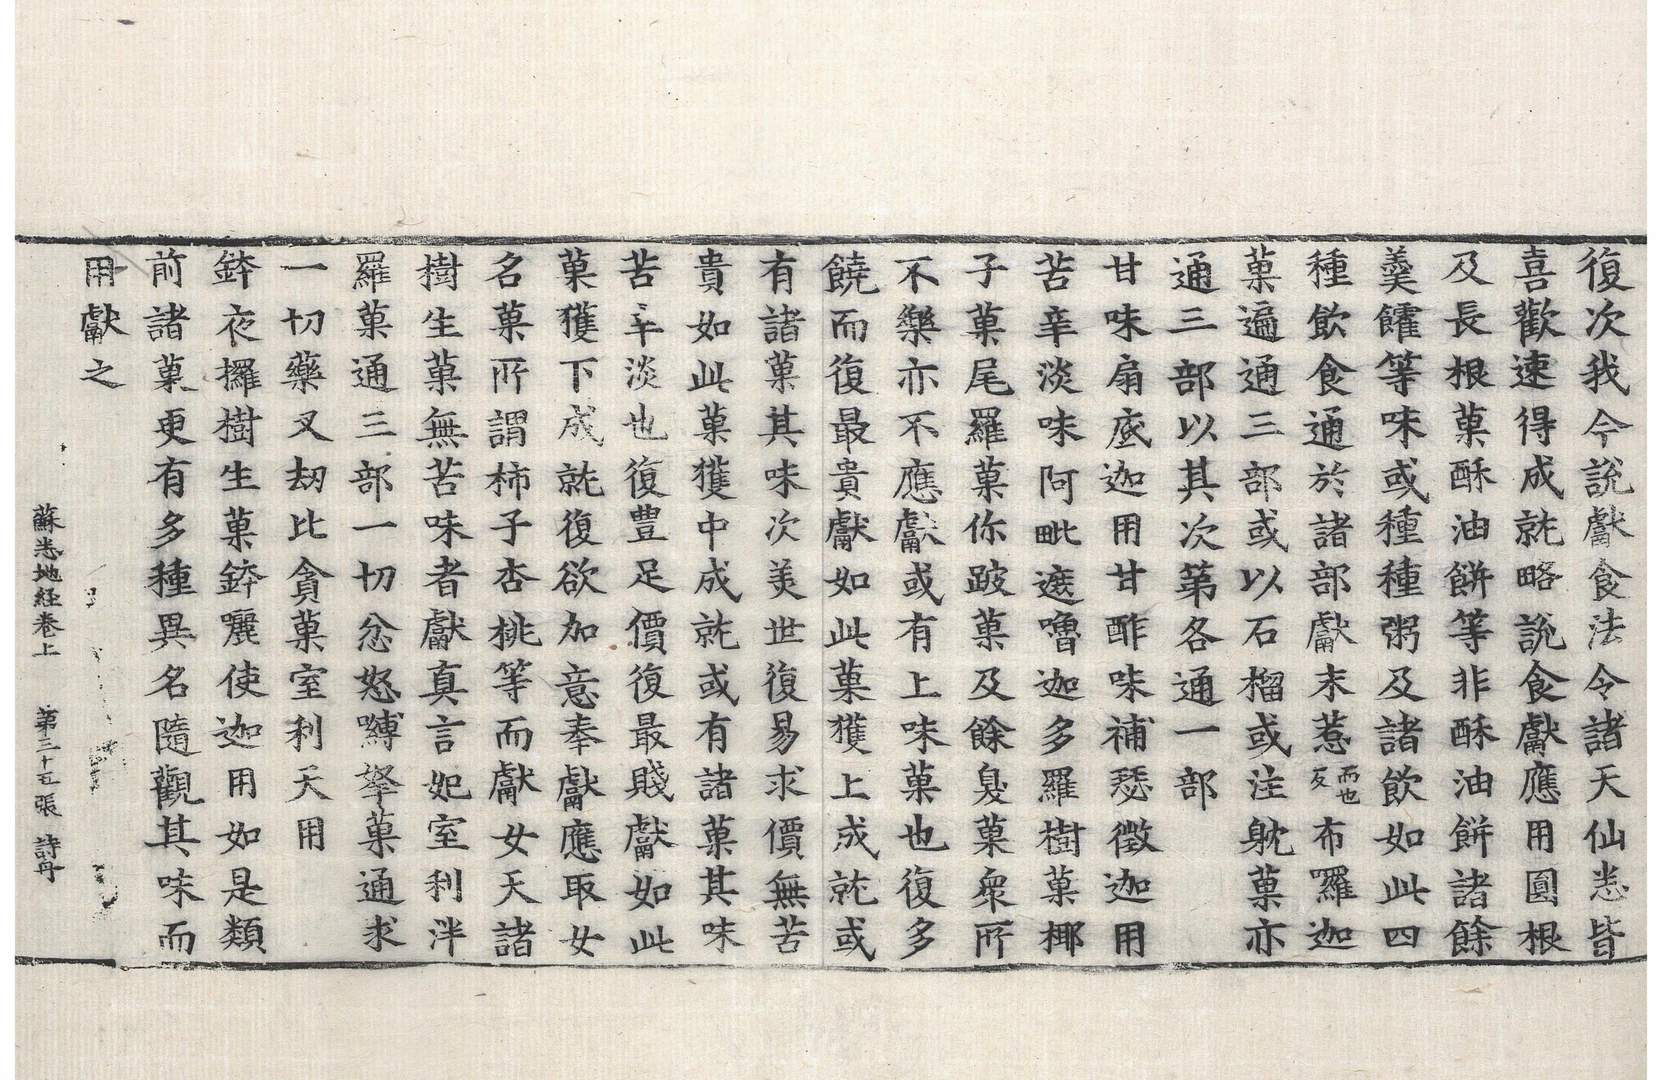 復次我今說獻食法令諸天仙悉皆
喜歡速得成就略說食獻應用圓根
及長根菓酥油餅等非酥油餅諸餘
羹臛等味或種種粥及諸飲如此四
種飲食通於諸部獻末惹而也反布囉迦
菓遍通三部或以石榴或注躭菓亦
通三部以其次第各通一部
甘味扇底迦用甘酢味補瑟徵迦用
苦辛淡味阿毗遮嚕迦多羅樹菓椰
子菓尾羅菓你跛菓及餘臭菓衆所
不樂亦不應獻或有上味菓也復多
饒而復最貴獻如此菓獲上成就或
有諸菓其味次美世復易求價無苦
貴如此菓獲中成就或有諸菓其味
苦辛淡也復豊足價復最賤獻如此
菓獲下成就復欲加意奉獻應取女
名菓所謂柿子杏桃等而獻女天諸
樹生菓無苦味者獻真言妃室利泮
羅菓通三部一切忿怒嚩拏菓通求
一切藥叉刼比貪菓室利天用
鉢夜攞樹生菓鉢囉使迦用如是類
前諸菓更有多種異名隨觀其味而
用獻之
蘇悉地経卷上 第三十五張 詩号